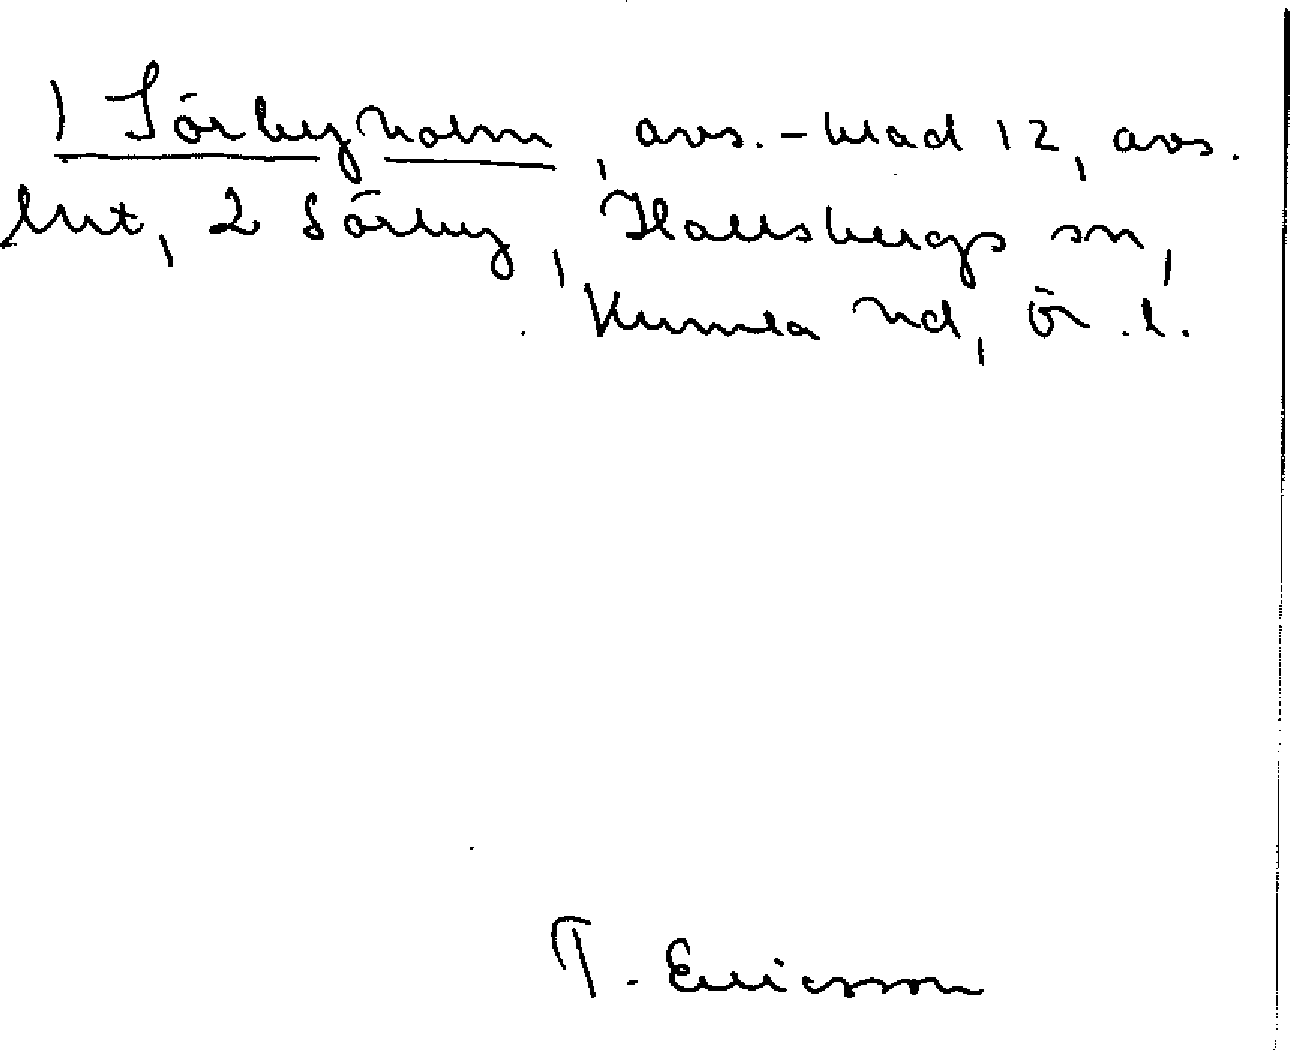 1 Sörbyholm, avs.-blad 12, avs.
lht, 2 Sörby, Hallsbergs sn,
Kumla hd, Ör. l.
T. Ericsson